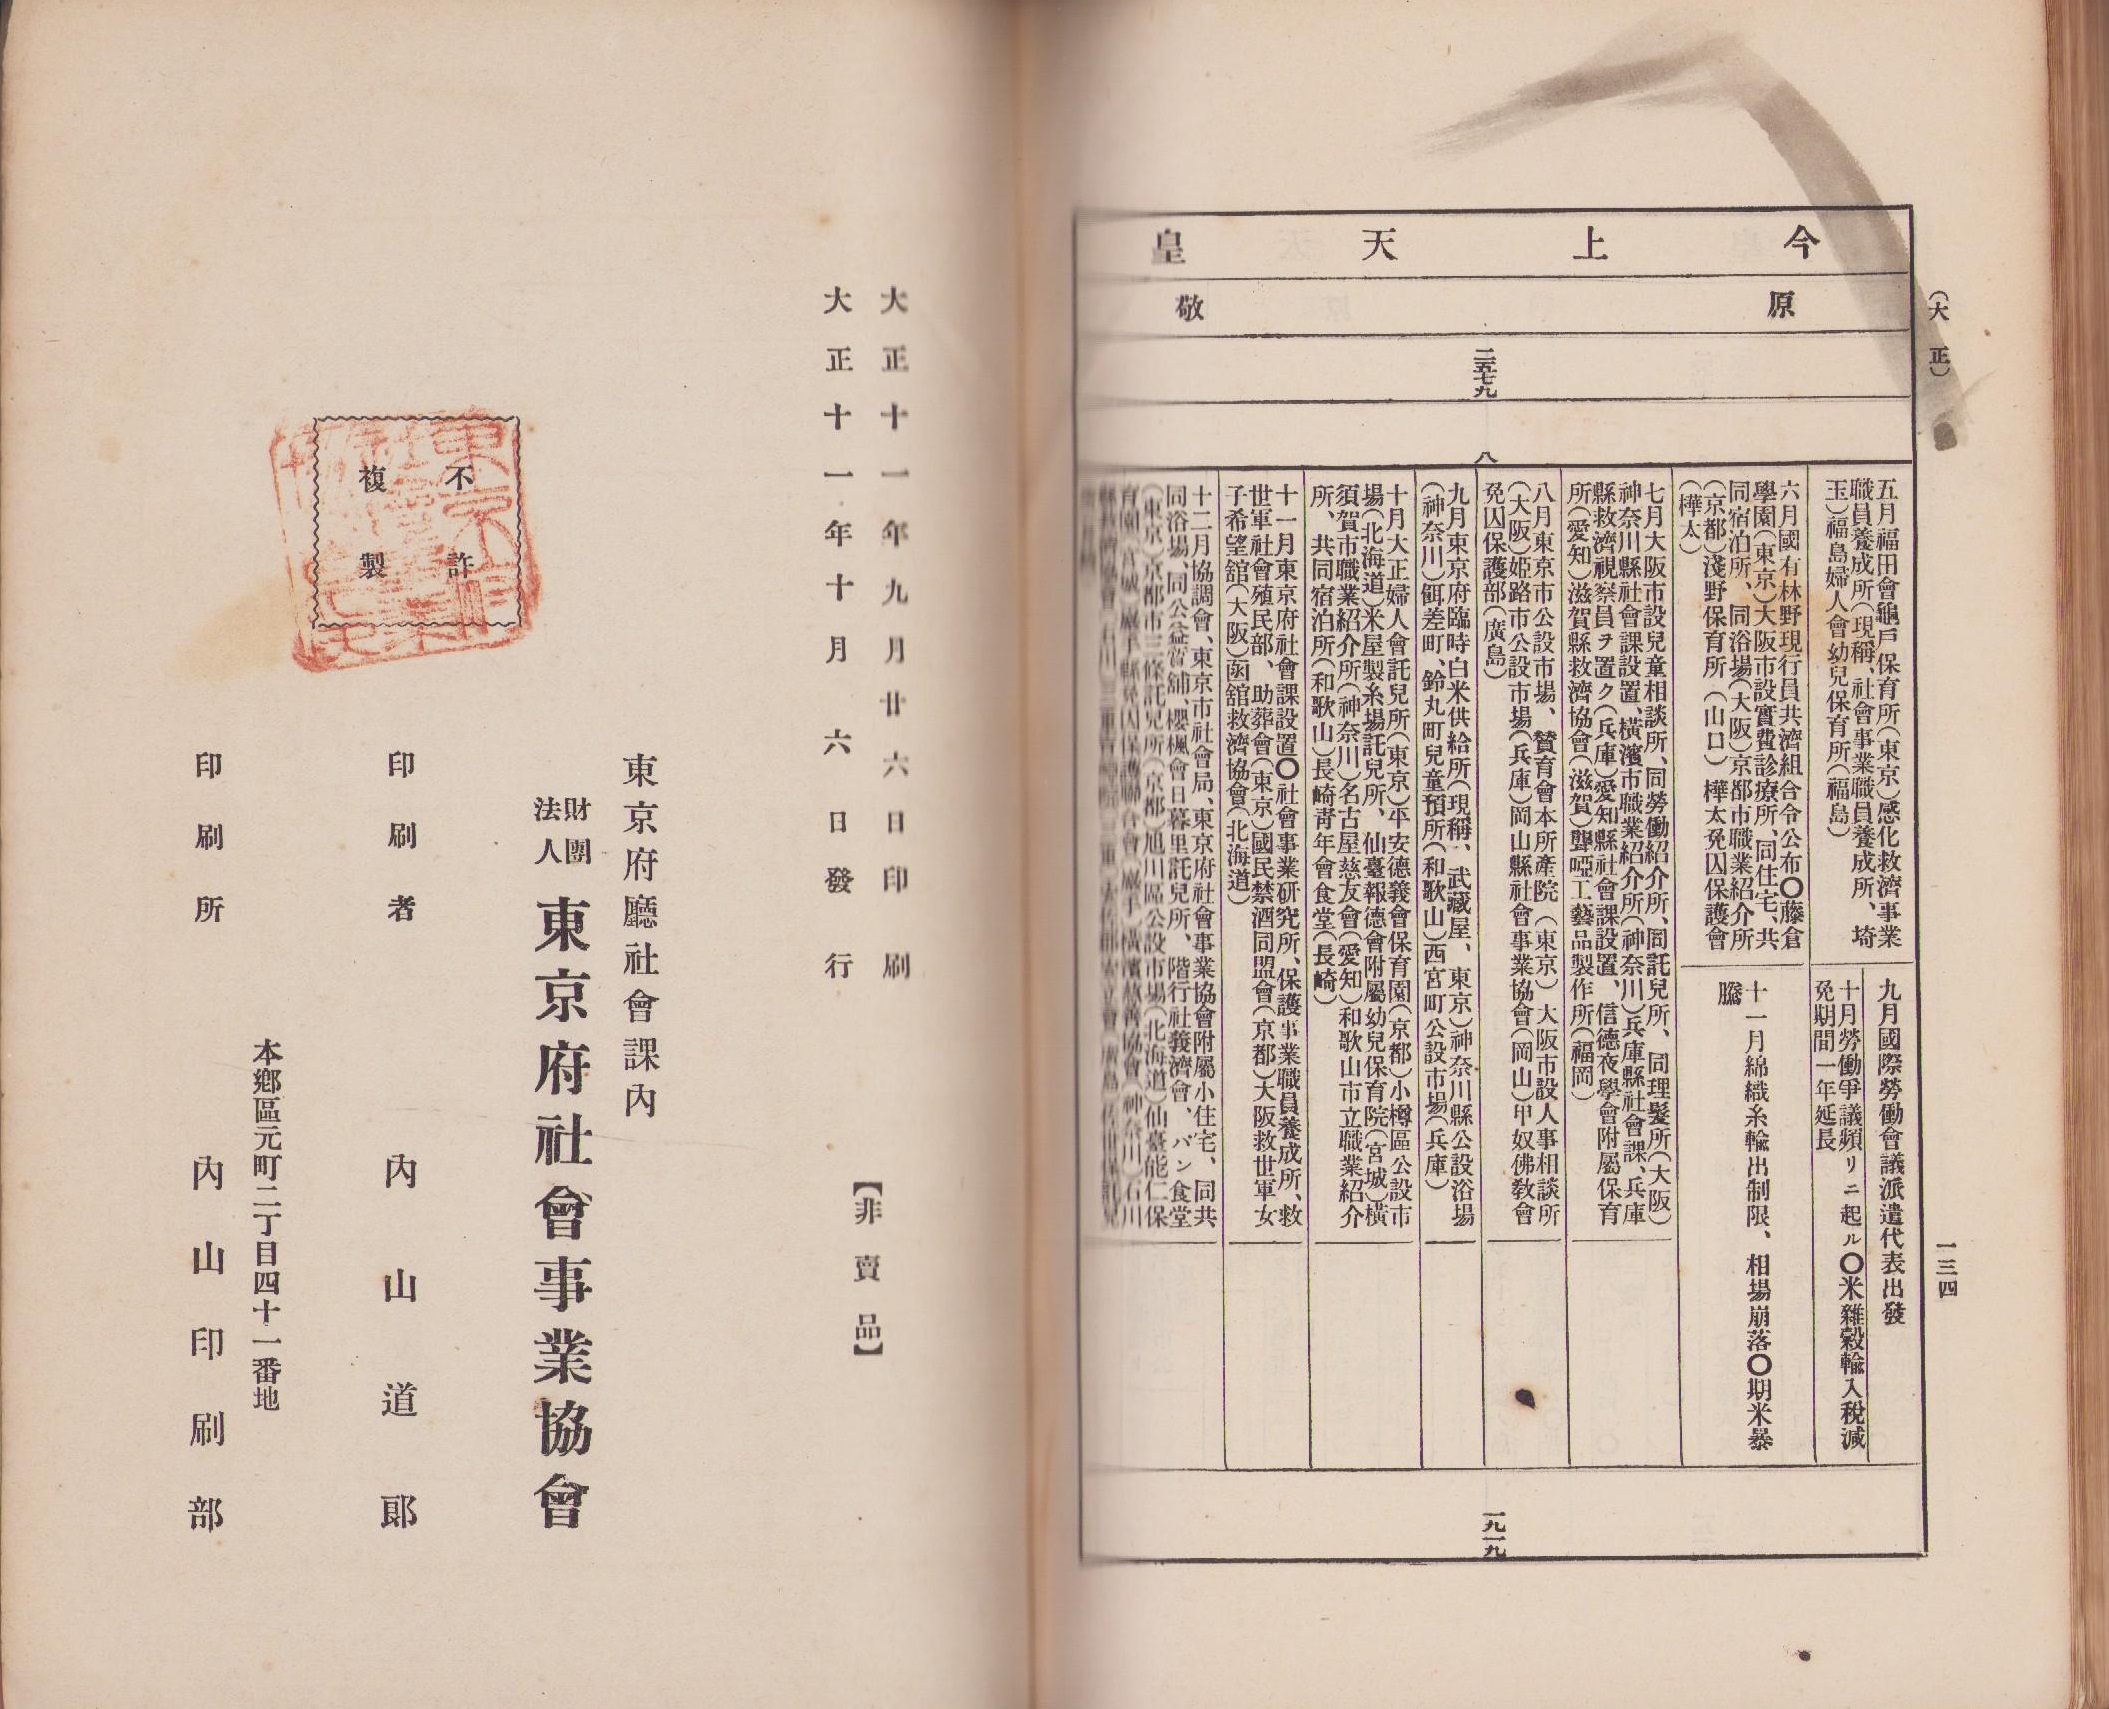 (大正)
一三四
今上天皇
原敬
二五七九
八
五月福田會龜戶保育所(東京)感化救濟事業
職員養成所(現稱、社會事業職員養成所、埼
玉)福島婦人會幼兒保育所(福島)
九月國際勞働會議派遣代表出發
十月勞働爭議頻リニ起ル〇米雜穀輸入稅減
免期間一年延長
六月國有林野現行員共濟組合令公布〇藤倉
學園(東京)大阪市設實費診療所、同住宅、共
同宿泊所、同浴場(大阪)京都市職業紹介所
(京都)淺野保育所(山口)樺太免囚保護會
(樺太)
十一月綿織糸輸出制限、相場崩落〇期米暴
騰
七月大阪市設兒童相談所、同勞働紹介所、同託兒所、同理髮所(大阪)
神奈川縣社會課設置、橫濱市職業紹介所(神奈川)兵庫縣社會課、兵庫
縣救濟視察員ヲ置ク(兵庫)愛知縣社會課設置、信德夜學會附屬保育
所(愛知)滋賀縣救濟協會(滋賀)聾啞工藝品製作所(福岡)
八月東京市公設市場、贊育會本所產院(東京)大阪市設人事相談所
(大阪)姬路市公設市場(兵庫)岡山縣社會事業協會(岡山)甲奴佛教會
免囚保護部(廣島)
九月東京府臨時白米供給所(現稱、武藏屋、東京)神奈川縣公設浴場
(神奈川)餌差町、鈴丸町兒童預所(和歌山)西宮町公設市場(兵庫)
十月大正婦人會託兒所(東京)平安德義會保育園(京都)小樽區公設市
場(北海道)米屋製糸場託兒所、仙臺報德會附屬幼兒保育院(宮城)橫
須賀市職業紹介所(神奈川)名古屋慈友會(愛知)和歌山市立職業紹介
所、共同宿泊所(和歌山)長崎靑年會食堂(長崎)
十一月東京府社會課設置〇社會事業硏究所、保護事業職員養成所、救
世軍社會殖民部、助葬會(東京)國民禁酒同盟會(京都)大阪救世軍女
子希望舘(大阪)函舘救濟協會(北海道)
十二月協調會、東京市社會局、東京府社會事業協會附屬小住宅、同共
同浴場、同公益質舖、櫻楓會日暮里託兒所、階行社義濟會、パン食堂
(東京)京都市三條託兒所(京都)旭川區公設市場(北海道)仙臺能仁保
一九一九
大正十一年九月廿六日印刷
大正十一年十月六日發行
【非賣品】
不許
複製
東京府廳社會課內
財團法人 東京府社會事業協會
印刷者 內山道郞
本鄕區元町二丁目四十一番地
印刷所 內山印刷部